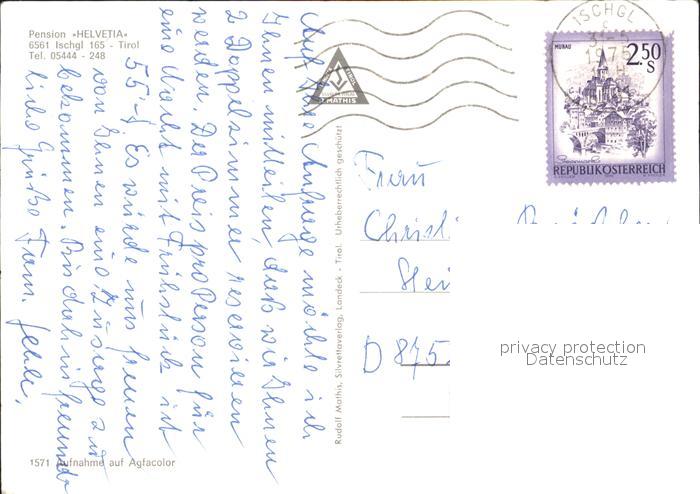 Pension »HELVETIA«
6561 Ischgl 165 - Tirol
Tel. 05444 - 248
Auf Ihre Anfrage möchte ich
Ihnen mitteilen, daß wir Ihnen
2 Doppelzimmer reservieren
werden. Der Preis pro Person für
eine Nacht mit Frühstück ist
55'- S Es würde uns freuen
von Ihnen eine Zusage zu
bekommen. Bis dahin freundl
liche Grüße Fam.
1571 Aufnahme auf Agfacolor
MATHIS
Rudolf Mathis, Silvrettaverlag, Landeck - Tirol. Urheberrechtlich geschützt
ISCHGL
1975
MURAU
2.50
S
REPUBLIK ÖSTERREICH
Frau
Christ
D 875
privacy protection
Datenschutz